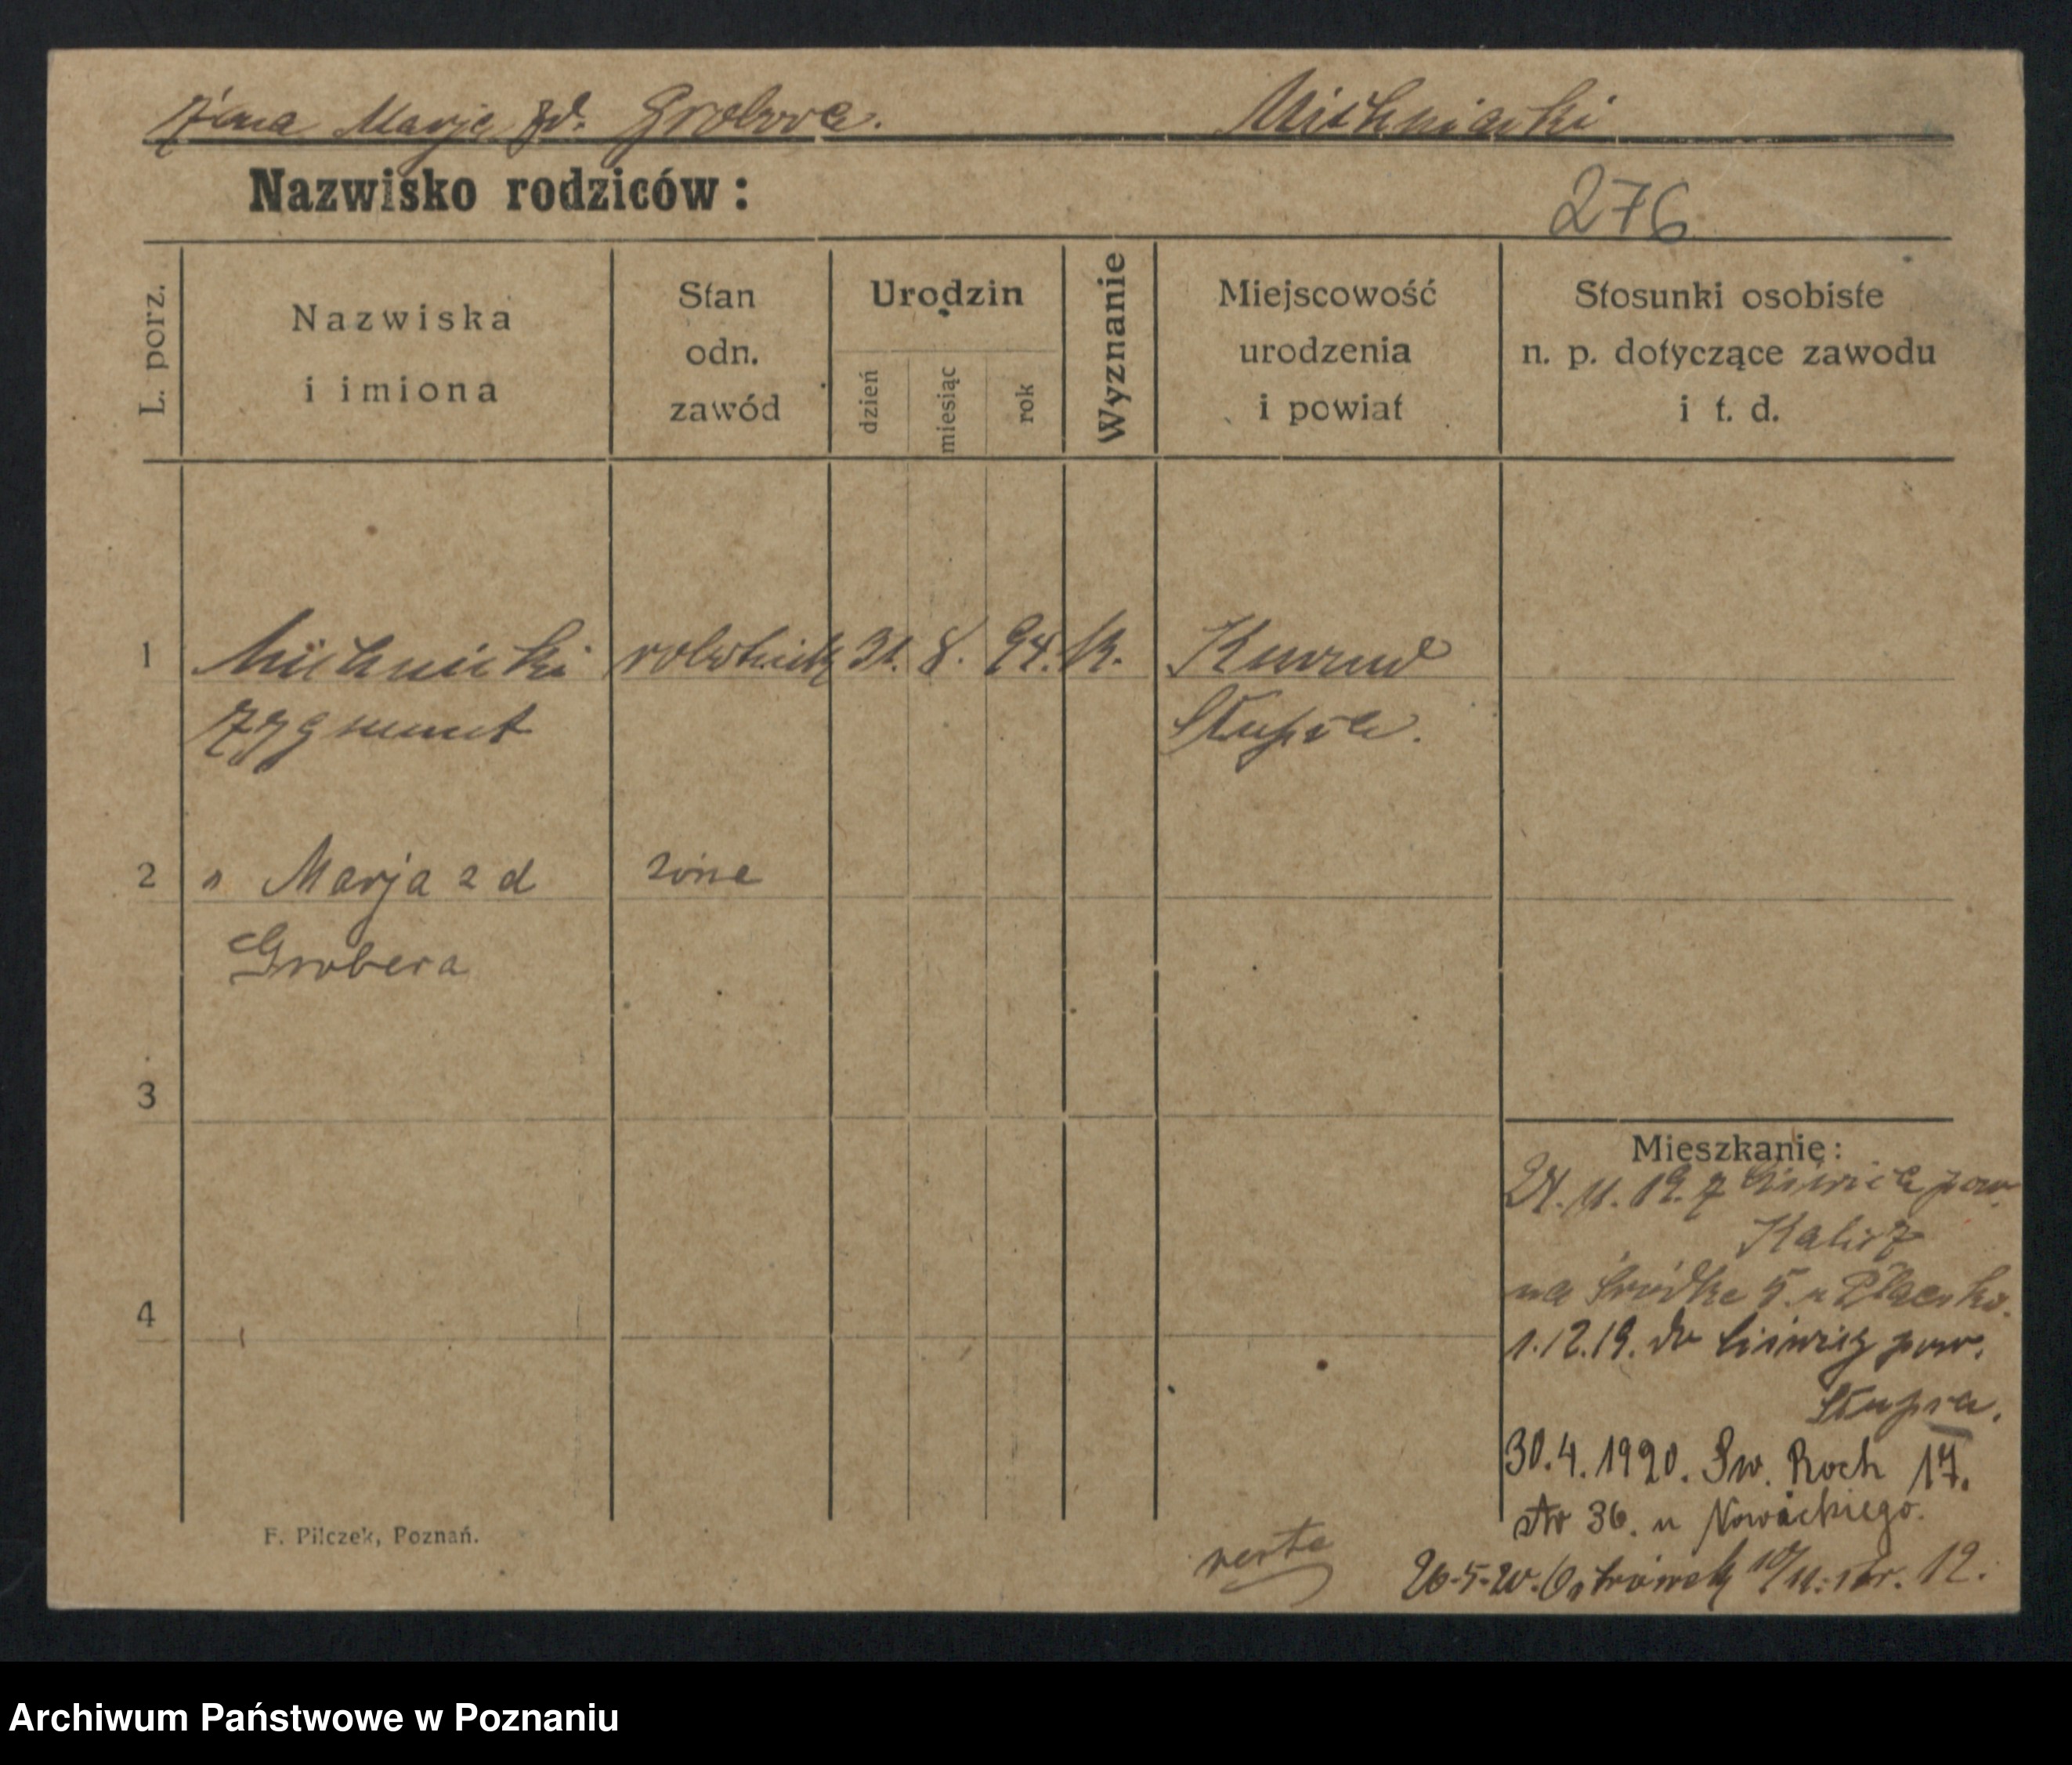 żona Marja zd. Grobera. Michniacki
Nazwisko rodziców:
276
L. porz.
Nazwiska
i imiona
Stan
odn.
zawód
Urodzin
dzień
miesiąc
rok
Wyznanie
Miejscowość
urodzenia
i powiat
Stosunki osobiste
n. p. dotyczące zawodu
i t. d.
1 Michnicki robotnik 31. 8. 94. k.
Zygmunt Słupca.
2 " Marja z d żona
Grobera
3
4
Mieszkanie:
24. 11. 19. z pow.
Kalisz
na Śródke 5. u
1.12.19. do pow.
Słupca.
30.4.1920. Św. Roch 17.
36. u Nowackiego.
26-5-20. Ostrówek 10/11. str. 12.
verte
F. Pilczek, Poznań.
Archiwum Państwowe w Poznaniu